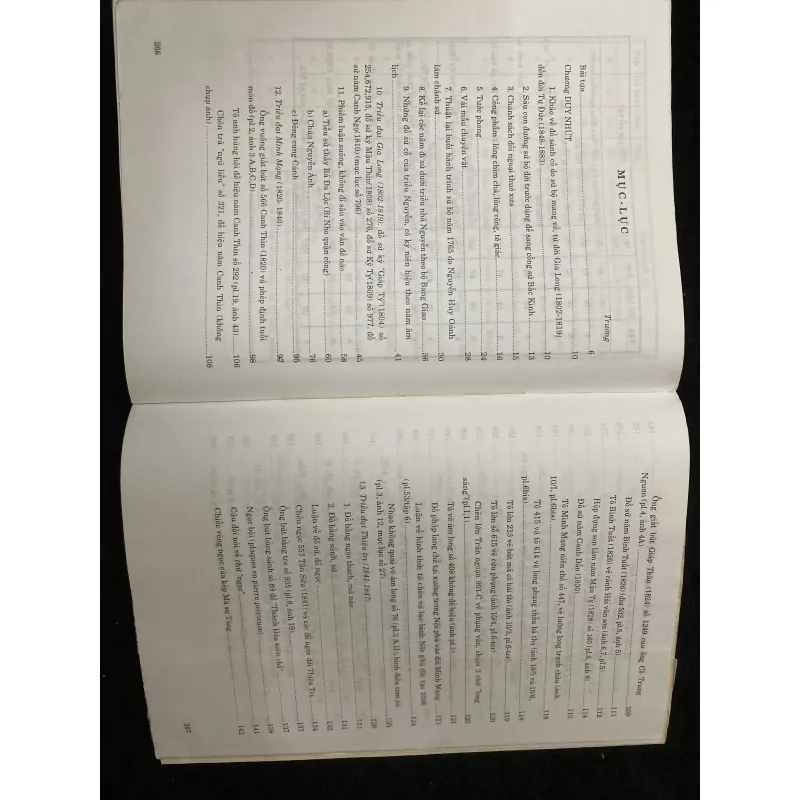 MỤC - LỤC
Trương
Bài tựa 6
Chương DUY NHỨT 10
1. Khảo về đồ sành cổ do sứ bộ mang về, từ đời Gia Long (1802-1819)
đến đời Tự Đức (1848-1883) 10
2. Sáu con đường sứ bộ đời trước dùng để sang cống sứ Bắc Kinh 13
3. Chánh sách đối ngoại thuở xưa 15
4. Cống phẩm : lông chim chả, lông công, tê giác 16
5. Tước phong 24
6. Vài mẩu chuyện vặt 28
7. Thuật lại buổi hành trình sứ bộ năm 1765 do Nguyễn Huy Oánh
làm chánh sứ 30
8. Kể lại các năm đi sứ dưới triều nhà Nguyễn theo bộ Bang Giao 36
9. Những đồ sứ cổ của triều Nguyễn, có ký niên hiệu theo năm âm
lịch 41
10. Triều đại Gia Long (1802-1819): đồ sứ ký "Giáp Tý"(1804) số
254,672,915, đồ sứ ký Mậu Thìn(1808) số 276, đồ sứ Kỷ Tỵ(1809) số 977, đồ
sứ năm Canh Ngọ(1810) (mục lục số 796) 45
11. Phiếm luận suông, không đi sâu vào vấn đề nào 58
a) Tiểu sử thầy Bá Đa Lộc (Bi Nho quận công) 60
b) Chúa Nguyễn Ánh 76
c) Đông cung Cảnh 95
12. Triều đại Minh Mạng (1820- 1840) 97
Ống vuông giắt bút số 566 Canh Thìn (1820) và phép định tuổi
món đồ (pl.2, ảnh 3 A,B,C,D) 98
Tô ảnh hứng hội đề hiệu năm Canh Thìn số 292 (pl.19, ảnh 43) 106
Chén trà "ngũ liễu" số 321, đề hiệu năm Canh Thìn (không
chụp ảnh) 108
266
Ống giắt bút Giáp Thân (1824) số 1249 của ông Cổ Trung
Ngươn (pl.4, ảnh 4A) 109
Đồ sứ năm Bính Tuất (1826) (dĩa 502, pl.5, ảnh 5) 111
Tô Bính Tuất (1826) vẽ cảnh Hải vân sơn (ảnh 6,7, pl.5) 112
Hộp đựng son làm năm Mậu Tý (1828) số 160 (pl.6, ảnh 8) 114
Đồ sứ năm Canh Dần (1830) 115
Tô Minh Mạng niên chế số 447, vẽ lưỡng long tranh châu (ảnh
10/1, pl.6bis) 118
Tô 415 và tô 614 vẽ long phụng chầu bá thọ (ảnh 10/5 và 10/6,
pl.6bis) 118
Tô lớn 213 vẽ bát mã có bài thi (ảnh 10/3, pl.6-ter) 119
Tô lớn số 615 vẽ cửu phụng (ảnh 10/4, pl.6-ter) 120
Chén lớn Trân ngoạn 901-C vẽ phụng vân, chạm 2 chữ "long
sàng"(pl.11) 120
Tô vẽ âm long số 408 không đề hiệu (ảnh pl.1) 121
Đồ pháp lang chế tại xưởng trong Nội phủ vào đời Minh Mạng 121
Luận về hình thức tô chén và lục bình Nội phủ đời tại 1006
(pl.53/tập 6) 124
Nhạo không quai vẽ âm long số 76 (pl.3 A,B), hình điếu tam sư
(pl.3, ảnh 12, mục lục số 27) 125
13. Triều đại Thiệu trị (1841-1847) 131
1. Đồ bằng ngọc thạch, mã não 131
2. Đồ bằng sành, sứ 132
Luận về đồ sứ, đồ ngọc 134
Chén ngọc 557 Tân Sửu (1841) và các đồ ngọc đời Thiệu Trị 137
Ống bút bằng tre số 935 (pl.8, ảnh 19) 137
Ống bút bằng sành số 89 đề "Thành Hóa niên chế" 139
Ngọc bội (plaques en pierre précieuse) 141
Câu đối nói về chữ "ngọc" 142
Chiếc vòng ngọc của kép Mã sư Tăng
267